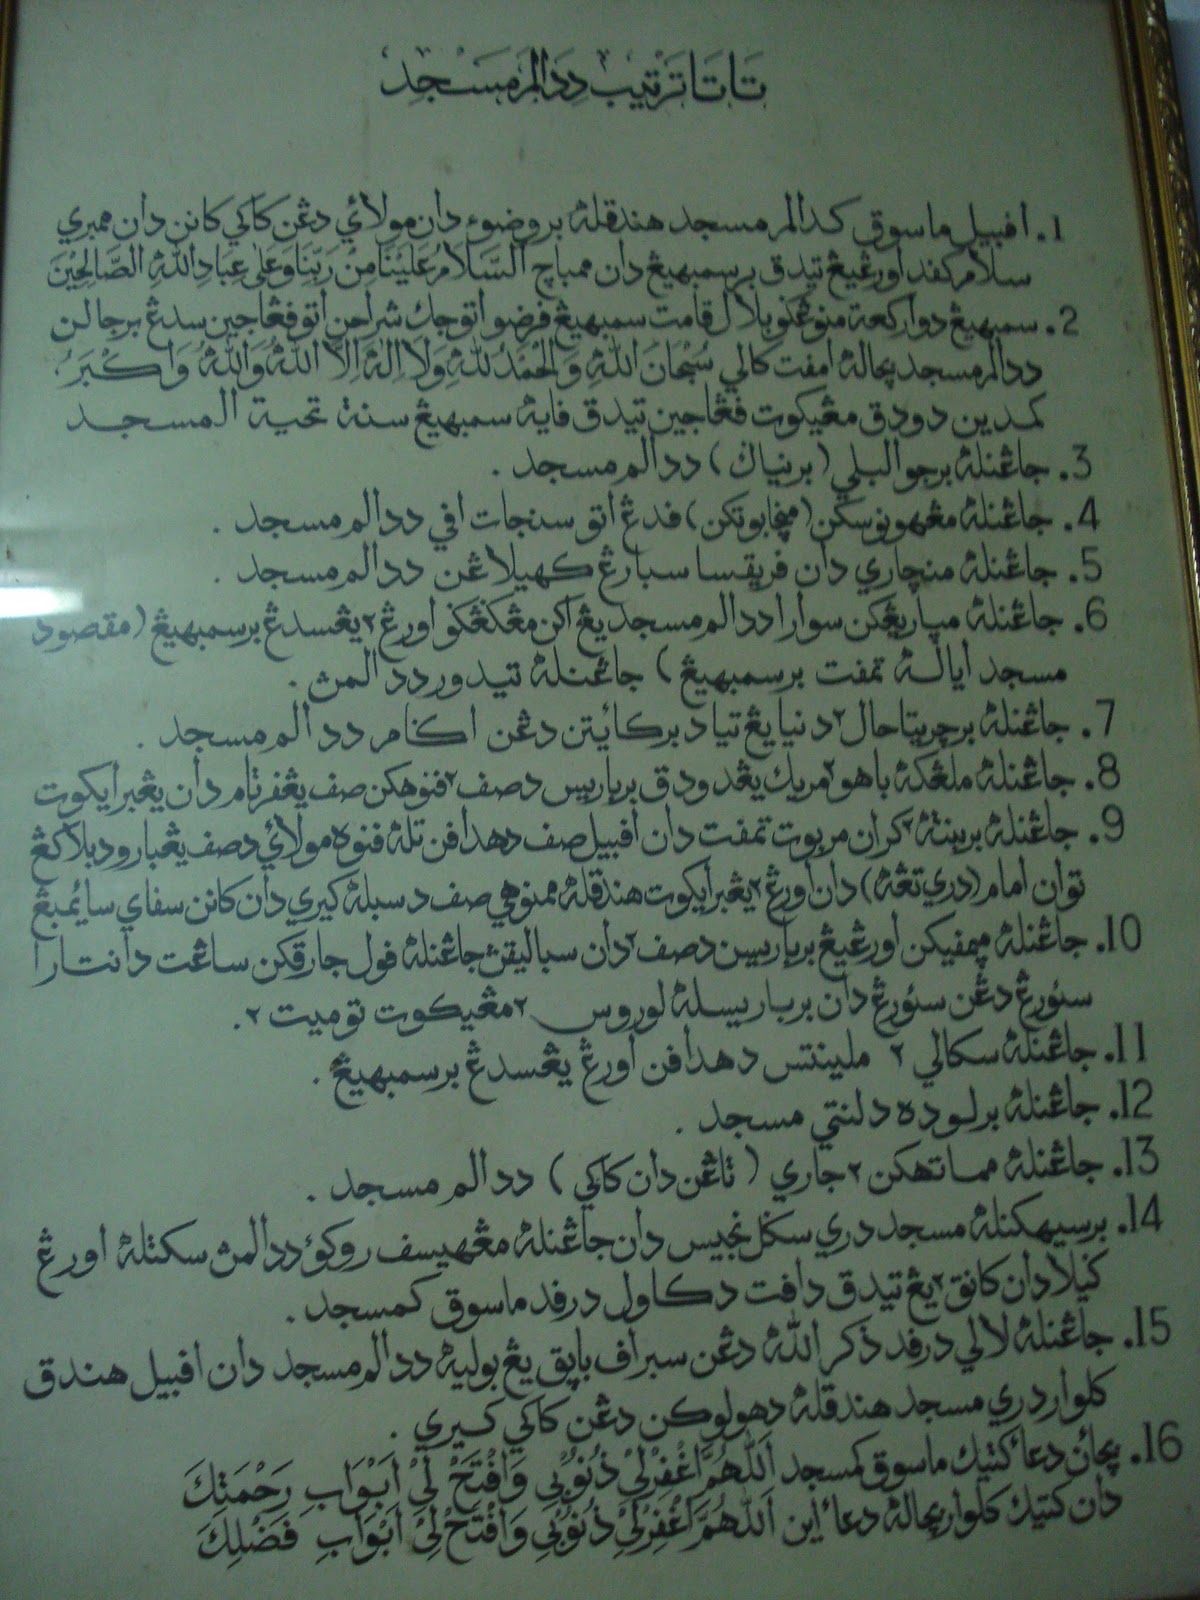 تاتاترتيب ددالم مسجد
1. اڤبيل ماسوق كدالم مسجد هندقله بروضوء دان مولائي دڠن كاكي كانن دان ممبري
سلام كڤد اورڠيڠ تيدق برسمبهيڠ دان ممباچ اَلسَّلَامُ عَلَيْنَا مِنْ رَبِّنَا وَعَلَى عِبَادِ اللهِ الصَّالِحِيْنَ
2. سمبهيڠ دوا ركعة منوڠكو بلال قامت سمبهيڠ فرضو اتو جك شراحن اتو ڤڠاجين سدڠ برجالن
ددالم مسجد بچاله امڤت كالي سُبْحَانَ اللهِ وَالْحَمْدُ لِلّٰهِ وَلَا اِلٰهَ اِلَّا اللهُ وَاللهُ وَاَكْبَرُ
كمدين دودق مڠيكوت ڤڠاجين تيدق ڤايه سمبهيڠ سنة تحية المسجد
3. جاڠنله برجوال بلي (برنياݢ) ددالم مسجد .
4. جاڠنله مڠهونوسكن (منچابوتكن) ڤدڠ اتو سنجات اڤي ددالم مسجد .
5. جاڠنله منچاري دان ڤريقسا سبارڠ كهيلاڠن ددالم مسجد .
6. جاڠنله مپاريڠكن سوارا ددالم مسجد يڠ اكن مڠݢڠݢو اورڠ٢ يڠسدڠ برسمبهيڠ (مقصود
مسجد اياله تمڤت برسمبهيڠ) جاڠنله تيدور ددالمڽ .
7. جاڠنله برچريتا حال٢ دنيا يڠ تياد بركائيتن دڠن اݢام ددالم مسجد .
8. جاڠنله ملڠكه باهو٢ مريك يڠدودق برباريس دصف٢ ڤنوهكن صف يڠڤرتام دان يڠبرايكوت
9. جاڠنله بربنته٢ كران مربوت تمڤت دان اڤبيل صف دهداڤن تله ڤنوه مولائي دصف يڠبارو دبلاكڠ
توان امام (دري تڠه) دان اورڠ٢ يڠبرايكوت هندقله ممنوهي صف دسبله كيري دان كانن سڤاي سائيمبڠ
10. جاڠنله مپمڤيتكن اورڠيڠ برباريس دصف٢ دان سباليقڽ جاڠنله ڤول جارقكن ساڠت دانتارا
سئورڠ دڠن سئورڠ دان برباريسله لوروس٢ مڠيكوت توميت٢ .
11. جاڠنله سكالي٢ ملينتس دهداڤن اورڠ يڠسدڠ برسمبهيڠ .
12. جاڠنله برلوده دلنتي مسجد .
13. جاڠنله مماتهكن٢ جاري (تاڠن دان كاكي) ددالم مسجد .
14. برسيهكنله مسجد دري سݢل نجيس دان جاڠنله مڠهيسڤ روكوء ددالمڽ سكتله اورڠ
ݢيلا دان كانق٢ يڠ تيدق داڤت دكاول درڤد ماسوق كمسجد .
15. جاڠنله لالي درڤد ذكر الله دڠن سبراڤ باپق يڠ بوليه ددالم مسجد دان اڤبيل هندق
كلوار دري مسجد هندقله دهولوكن دڠن كاكي كيري .
16. بچائن دعاء كتيك ماسوق كمسجد اَللّٰهُمَّ اغْفِرْلِيْ ذُنُوْبِيْ وَافْتَحْ لِيْ اَبْوَابِ رَحْمَتِكَ
دان كتيك كلوار بچاله دعاء اين اَللّٰهُمَّ اغْفِرْلِيْ ذُنُوْبِيْ وَافْتَحْ لِيْ اَبْوَابِ فَضْلِكَ